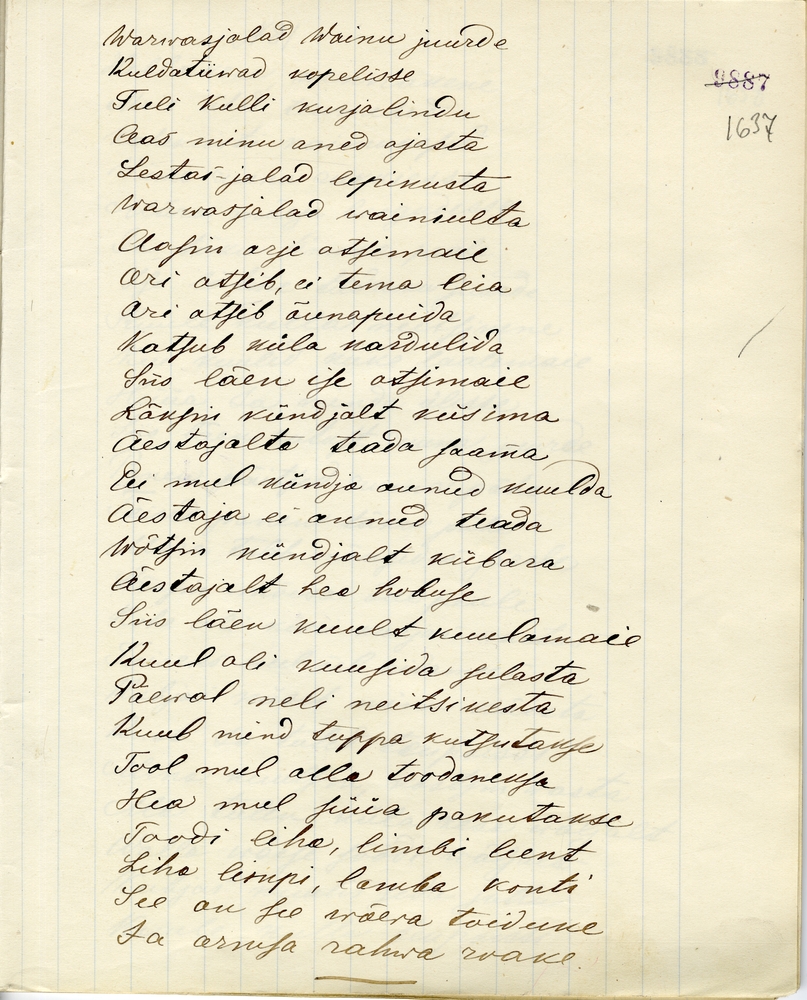 Warwasjalad Wainu juurde
Kuldatiiwad kopelisse
Tuli Kulli kurjalindu
Aas minu aned ajasta
Lestas-jalad lepikusta
Warwasjalad wainiulta
Aasin orje otsimaie
Ori otsib, ei tema leia
Ori otsib õunapuida
Katsub küla kardulida
Siis läen ise otsimaie
Läksin kündjalt küsima
Äestajalta teada saama
Ei mul kündja annud kuulda
Äestaja ei annud teada
Wõtsin kündjalt kübara
Äestajalt hea hobuse
Siis läen kuult kuulamaie
Kuul oli kuusida sulasta
Päewal neli neitsikesta
Kuub mind tuppa kutsutakse
Tool mul alla toodanekse
Hea mul süüa pakutakse
Toodi liha, limbi leent
Liha limpi, lamba konti
See on see wõera toiduke
Ja armsa rahwa roake.
9887
1637